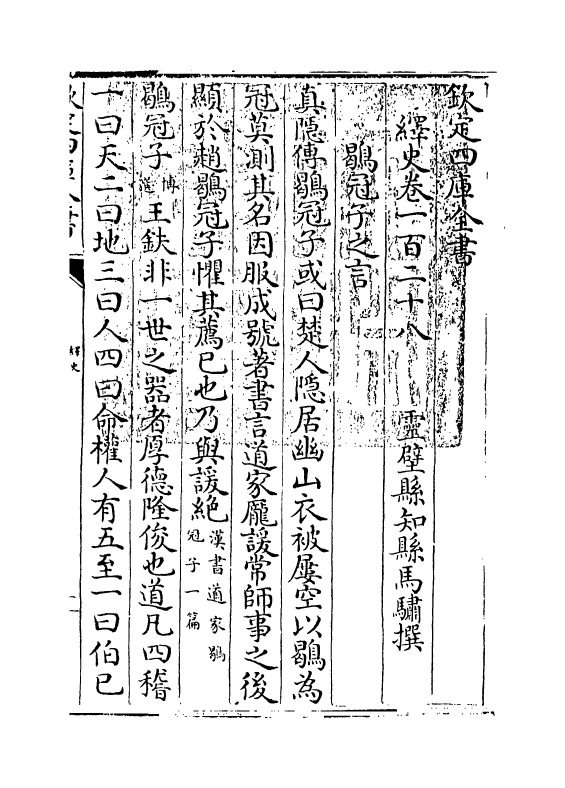 欽定四庫全書
繹史卷一百二十八　靈壁縣知縣馬驌撰
鶡冠子之言
真隱傳鶡冠子或曰楚人隱居幽山衣被屢空以鶡為
冠莫測其名因服成號著書言道家龎諼常師事之後
顯於趙鶡冠子懼其薦己也乃與諼絶漢書道家鶡冠子一篇
鶡冠子博選王鈇非一世之器者厚德隆俊也道凡四稽
一曰天二曰地三曰人四曰命權人有五至一曰伯已
欽定四庫全書
繹史